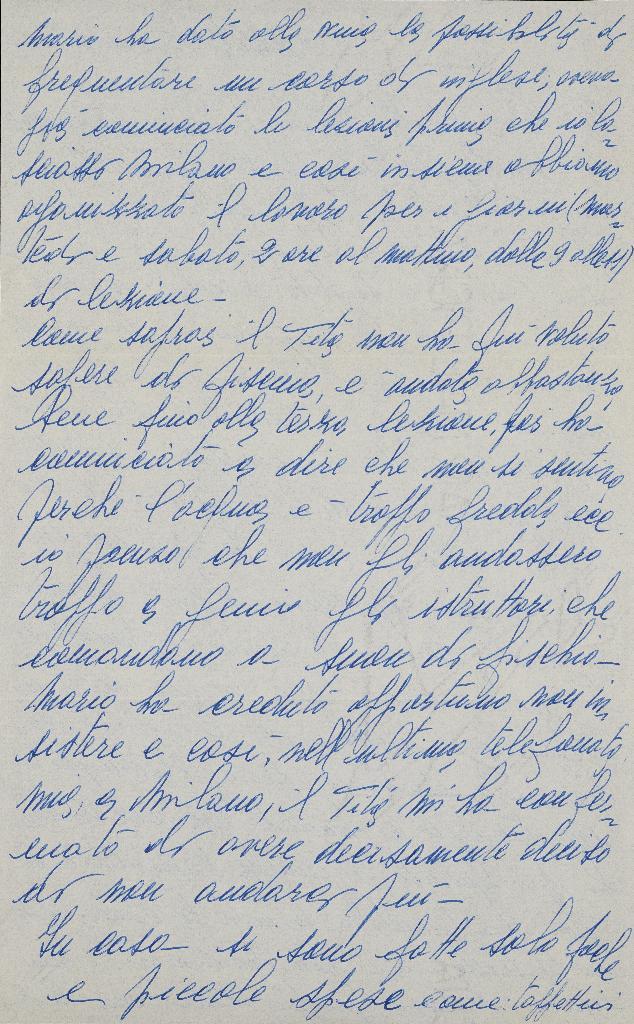 Mario ha dato alla Mina la possibilità di
frequentare un corso di inglese; aveva
già cominciato le lezioni prima che io la=
sciassi Milano e così insieme abbiamo
organizzato il lavoro per i giorni (mar=
tedì e sabato, 2 ore al mattino, dalle 9 alle 11)
di lezione -
Come saprai il Titi non ha più voluto
sapere di piscina, è andato abbastanza
bene fino alla terza lezione poi ha
cominciato a dire che non si sentiva
perchè l'acqua è troppo fredda ecc
io penso che non gli andassero
troppo a genio gli istruttori che
comandano a suon di fischio -
Mario ha creduto opportuno non in=
sistere e così, nell'ultima telefonata
mia, a Milano, il Titi mi ha confer=
mato di avere decisamente deciso
di non andarci più -
In casa si sono fatte solo poche
e piccole spese come: tappettini